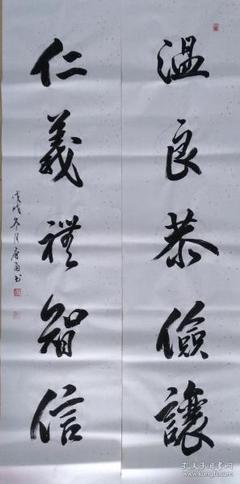 溫良恭儉讓
仁義禮智信
戊戌冬月